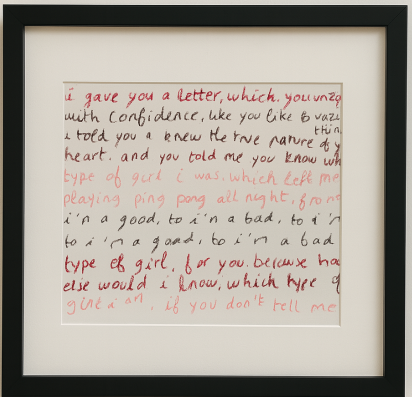 i gave you a letter, which. you unzip
with confidence, like you like to
thin
i told you i knew the true nature of y
heart. and you told me you know wh
type of girl i was. which left me
playing ping pong all night, from
i'm a good, to i'm a bad, to i'm
to i'm a good, to i'm a bad
type of girl, for you. because how
else would i know, which type of
girl i am, if you don't tell me